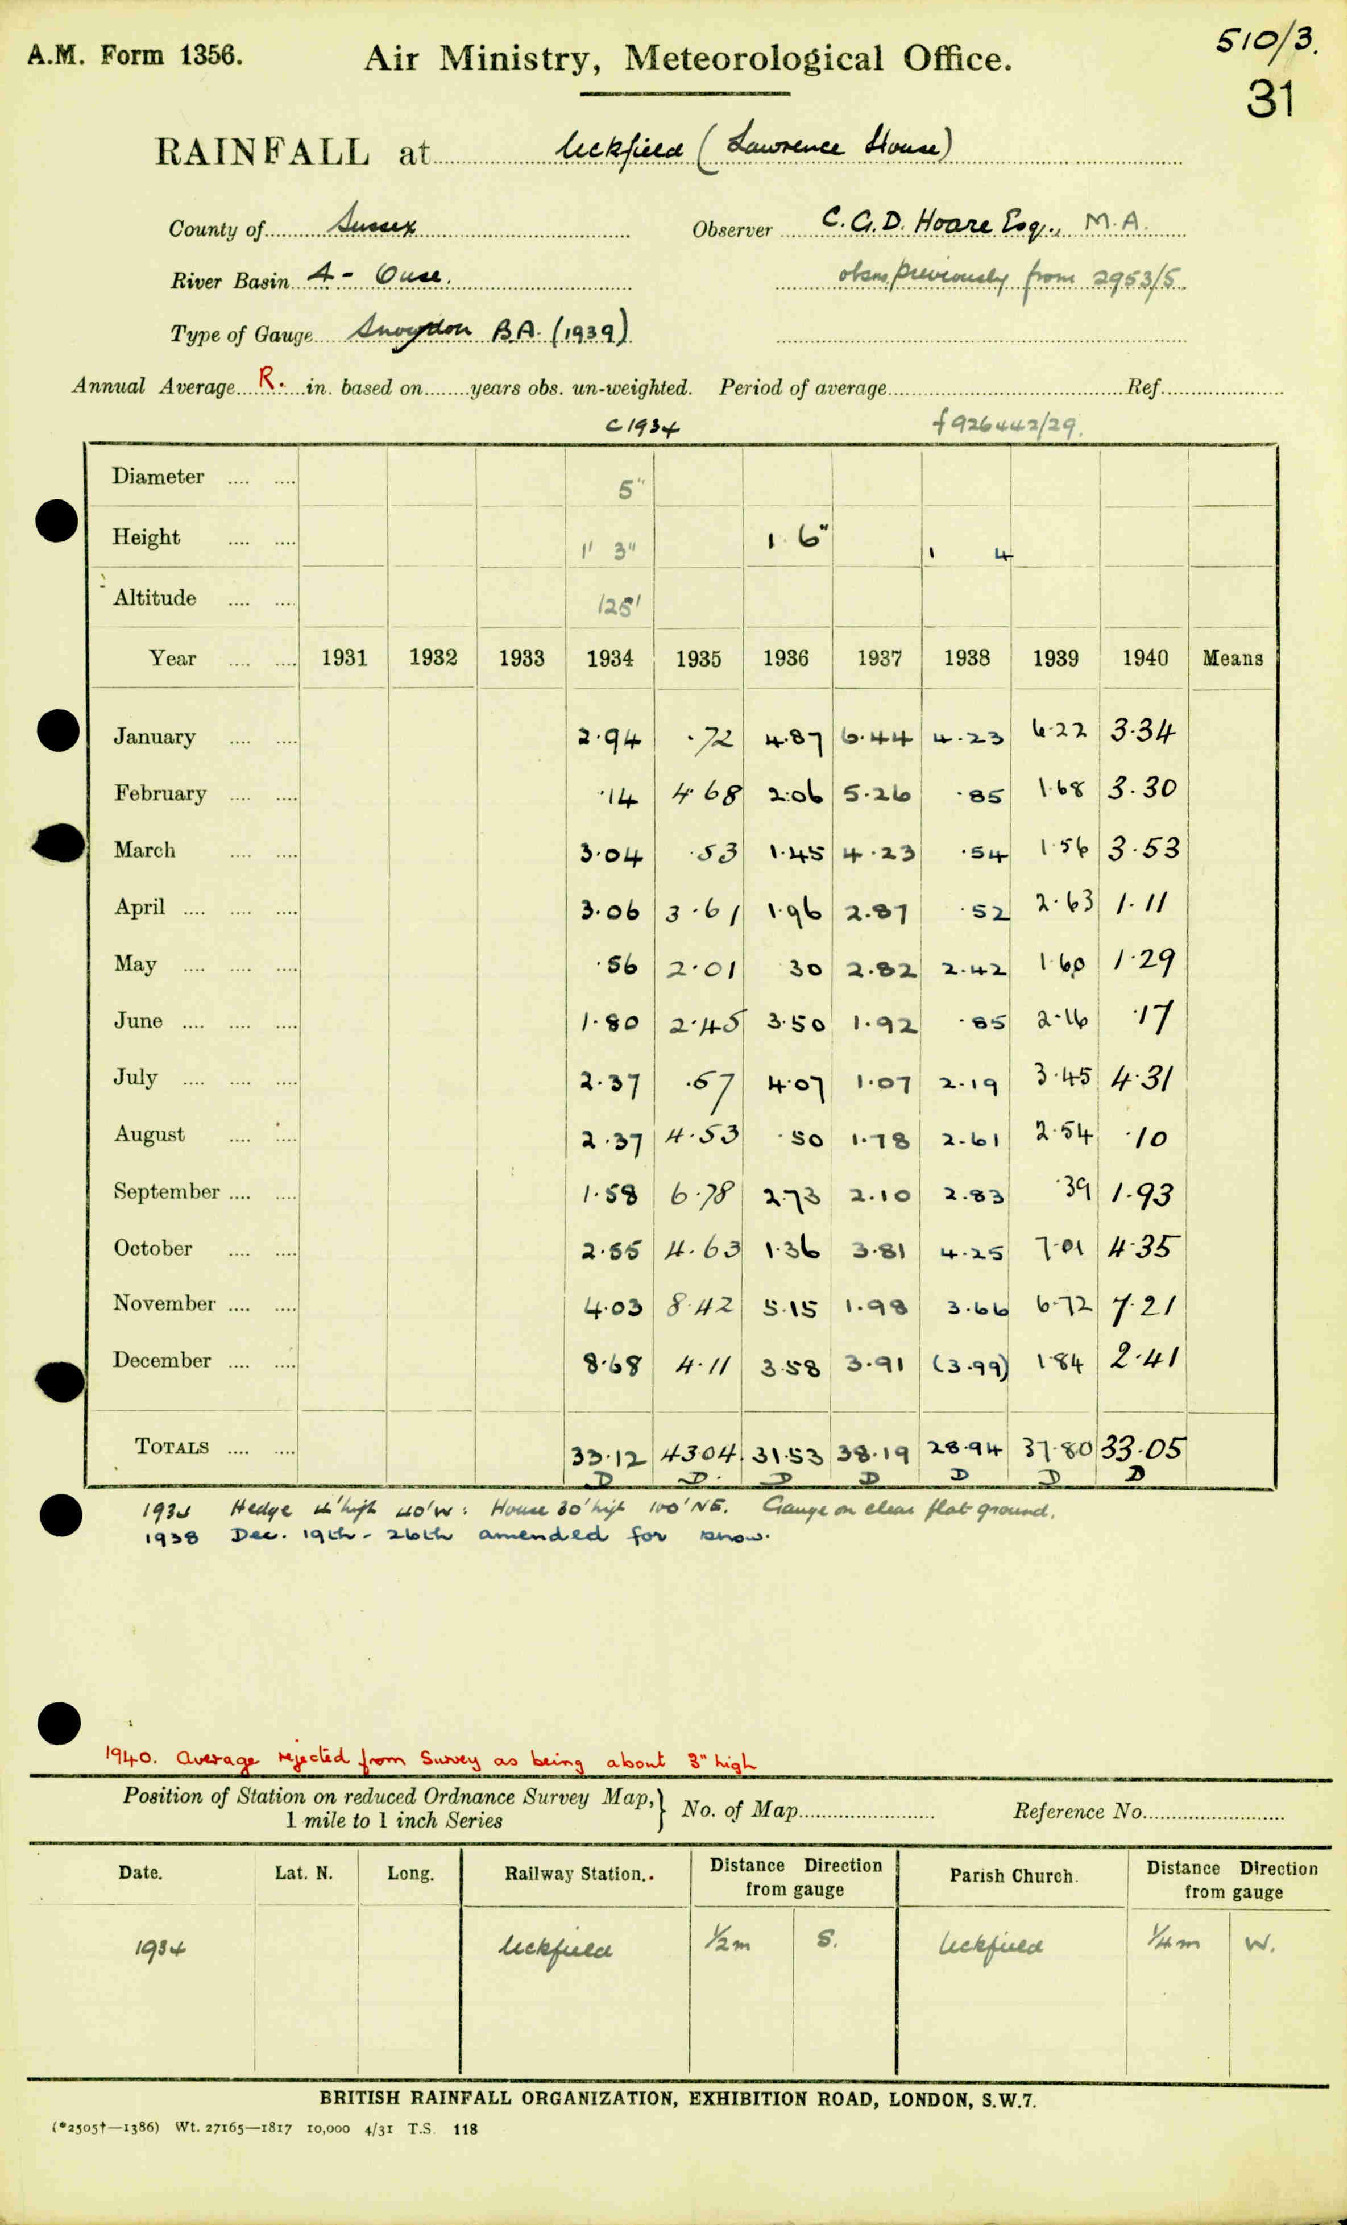 A.M. Form 1356. Air Ministry, Meteorological Office. 510/3.
31
RAINFALL at Uckfield (Lawrence House)
County of Sussex Observer C.G.D. Hoare Esq., M.A.
River Basin A - Ouse. obsns previously from 2953/5
Type of Gauge Snowdon B.A. (1939)
Annual Average R. in. based on years obs. un-weighted. Period of average Ref.
c 1934 f 926442/29.
Diameter 5"
Height 1' 3" 1 6" 1 4
Altitude 125'
Year 1931 1932 1933 1934 1935 1936 1937 1938 1939 1940 Means
January 2.94 .72 4.87 6.44 4.23 6.22 3.34
February .14 4.68 2.06 5.26 .85 1.68 3.30
March 3.04 .53 1.45 4.23 .54 1.56 3.53
April 3.06 3.61 1.96 2.87 .52 2.63 1.11
May .56 2.01 30 2.82 2.42 1.60 1.29
June 1.80 2.45 3.50 1.92 .85 2.16 .17
July 2.37 .57 4.07 1.07 2.19 3.45 4.31
August 2.37 4.53 .50 1.78 2.61 2.54 .10
September 1.58 6.78 2.73 2.10 2.83 .39 1.93
October 2.55 4.63 1.36 3.81 4.25 7.01 4.35
November 4.03 8.42 5.15 1.98 3.66 6.72 7.21
December 8.68 4.11 3.58 3.91 (3.99) 1.84 2.41
TOTALS 33.12 43.04 31.53 38.19 28.94 37.80 33.05
D D D D D D D
1934 Hedge 4' high 40' W: House 30' high 100' NE. Gauge on clear flat ground.
1938 Dec. 19th - 26th amended for snow.
1940. Average rejected from Survey as being about 3" high
Position of Station on reduced Ordnance Survey Map, 1 mile to 1 inch Series } No. of Map Reference No.
Date. Lat. N. Long. Railway Station. Distance Direction from gauge Parish Church. Distance Direction from gauge
1934 Uckfield 1/2 m S. Uckfield 1/4 m W.
BRITISH RAINFALL ORGANIZATION, EXHIBITION ROAD, LONDON, S.W.7.
(*2505†—1386) Wt. 27165—1817 10,000 4/31 T.S. 118